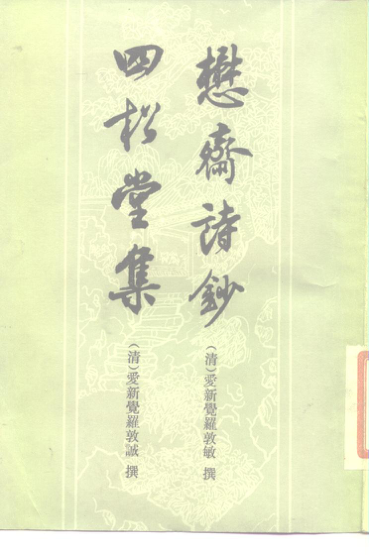 懋齋詩鈔
(清)愛新覺羅敦敏 撰
四松堂集
(清)愛新覺羅敦誠 撰